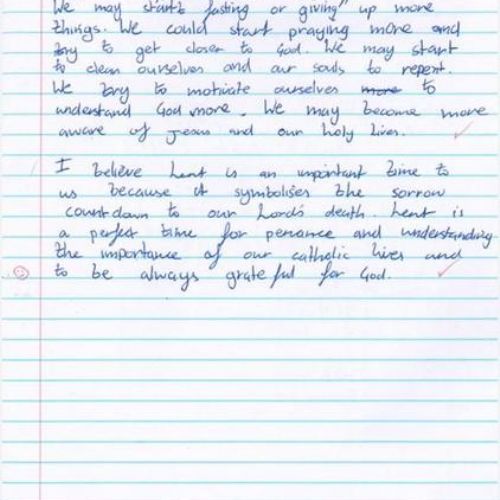 We may start fasting or giving" up more
things. We could start praying more and
try to get closer to God. We may start
to clean ourselves and our souls to repent.
We try to motivate ourselves more to
understand God more. We may become more
aware of Jesus and our holy lives.
I believe Lent is an important time to
us because it symbolises the sorrow
countdown to our Lord's death. Lent is
a perfect time for penance and understanding
the importance of our catholic lives and
to be always grateful for God.